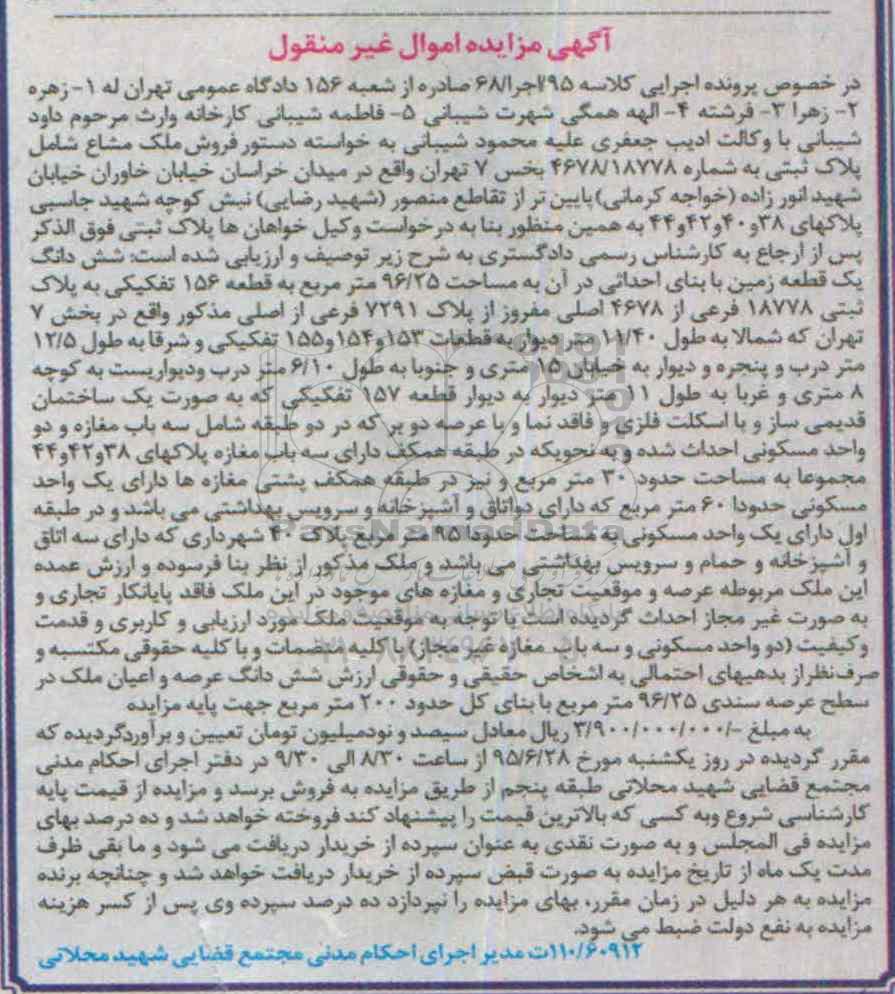 آگهی مزایده اموال غیر منقول
در خصوص پرونده اجرایی کلاسه ۹۵/اجرا/۶۸ صادره از شعبه ۱۵۶ دادگاه عمومی تهران له ۱- زهره
۲- زهرا ۳- فرشته ۴- الهه همگی شهرت شیبانی ۵- فاطمه شیبانی کارخانه وارث مرحوم داود
شیبانی با وکالت ادیب جعفری علیه محمود شیبانی به خواسته دستور فروش ملک مشاع شامل
پلاک ثبتی به شماره ۴۶۷۸/۱۸۷۷۸ بخس ۷ تهران واقع در میدان خراسان خیابان خاوران خیابان
شهید انور زاده (خواجه کرمانی) پایین تر از تقاطع منصور (شهید رضایی) نبش کوچه شهید جاسبی
پلاکهای ۳۸و۴۰و۴۲و۴۴ به همین منظور بنا به درخواست وکیل خواهان ها پلاک ثبتی فوق الذکر
پس از ارجاع به کارشناس رسمی دادگستری به شرح زیر توصیف و ارزیابی شده است: شش دانگ
یک قطعه زمین با بنای احداثی در آن به مساحت ۹۶/۲۵ متر مربع به قطعه ۱۵۶ تفکیکی به پلاک
ثبتی ۱۸۷۷۸ فرعی از ۴۶۷۸ اصلی مفروز از پلاک ۷۲۹۱ فرعی از اصلی مذکور واقع در بخش ۷
تهران که شمالا به طول ۱۱/۴۰ متر دیوار به قطعات ۱۵۳و۱۵۴و۱۵۵ تفکیکی و شرقا به طول ۱۲/۵
متر درب و پنجره و دیوار به خیابان ۱۵ متری و جنوبا به طول ۶/۱۰ متر درب ودیواریست به کوچه
۸ متری و غربا به طول ۱۱ متر دیوار به دیوار قطعه ۱۵۷ تفکیکی که به صورت یک ساختمان
قدیمی ساز و با اسکلت فلزی و فاقد نما و با عرصه دو بر که در دو طبقه شامل سه باب مغازه و دو
واحد مسکونی احداث شده و به نحویکه در طبقه همکف دارای سه باب مغازه پلاکهای ۳۸و۴۲و۴۴
مجموعا به مساحت حدود ۳۰ متر مربع و نیز در طبقه همکف پشتی مغازه ها دارای یک واحد
مسکونی حدودا ۶۰ متر مربع که دارای دواتاق و آشپزخانه و سرویس بهداشتی می باشد و در طبقه
اول دارای یک واحد مسکونی به مساحت حدودا ۹۵ متر مربع پلاک ۴۰ شهرداری که دارای سه اتاق
و آشپزخانه و حمام و سرویس بهداشتی می باشد و ملک مذکور از نظر بنا فرسوده و ارزش عمده
این ملک مربوطه عرصه و موقعیت تجاری و مغازه های موجود در این ملک فاقد پایانکار تجاری و
به صورت غیر مجاز احداث گردیده است با توجه به موقعیت ملک مورد ارزیابی و کاربری و قدمت
وکیفیت (دو واحد مسکونی و سه باب مغازه غیر مجاز) با کلیه منضمات و با کلیه حقوقی مکتسبه و
صرف نظر از بدهیهای احتمالی به اشخاص حقیقی و حقوقی ارزش شش دانگ عرصه و اعیان ملک در
سطح عرصه سندی ۹۶/۲۵ متر مربع با بنای کل حدود ۲۰۰ متر مربع جهت پایه مزایده
به مبلغ -/۳/۹۰۰/۰۰۰/۰۰۰ ریال معادل سیصد و نودمیلیون تومان تعیین و برآوردگردیده که
مقرر گردیده در روز یکشنبه مورخ ۹۵/۶/۲۸ از ساعت ۸/۳۰ الی ۹/۳۰ در دفتر اجرای احکام مدنی
مجتمع قضایی شهید محلاتی طبقه پنجم از طریق مزایده به فروش برسد و مزایده از قیمت پایه
کارشناسی شروع وبه کسی که بالاترین قیمت را پیشنهاد کند فروخته خواهد شد و ده درصد بهای
مزایده فی المجلس و به صورت نقدی به عنوان سپرده از خریدار دریافت می شود و ما بقی ظرف
مدت یک ماه از تاریخ مزایده به صورت قبض سپرده از خریدار دریافت خواهد شد و چنانچه برنده
مزایده به هر دلیل در زمان مقرر، بهای مزایده را نپردازد ده درصد سپرده وی پس از کسر هزینه
مزایده به نفع دولت ضبط می شود.
۱۱۰/۶۰۹۱۲ت مدیر اجرای احکام مدنی مجتمع قضایی شهید محلاتی
ParsNamadData